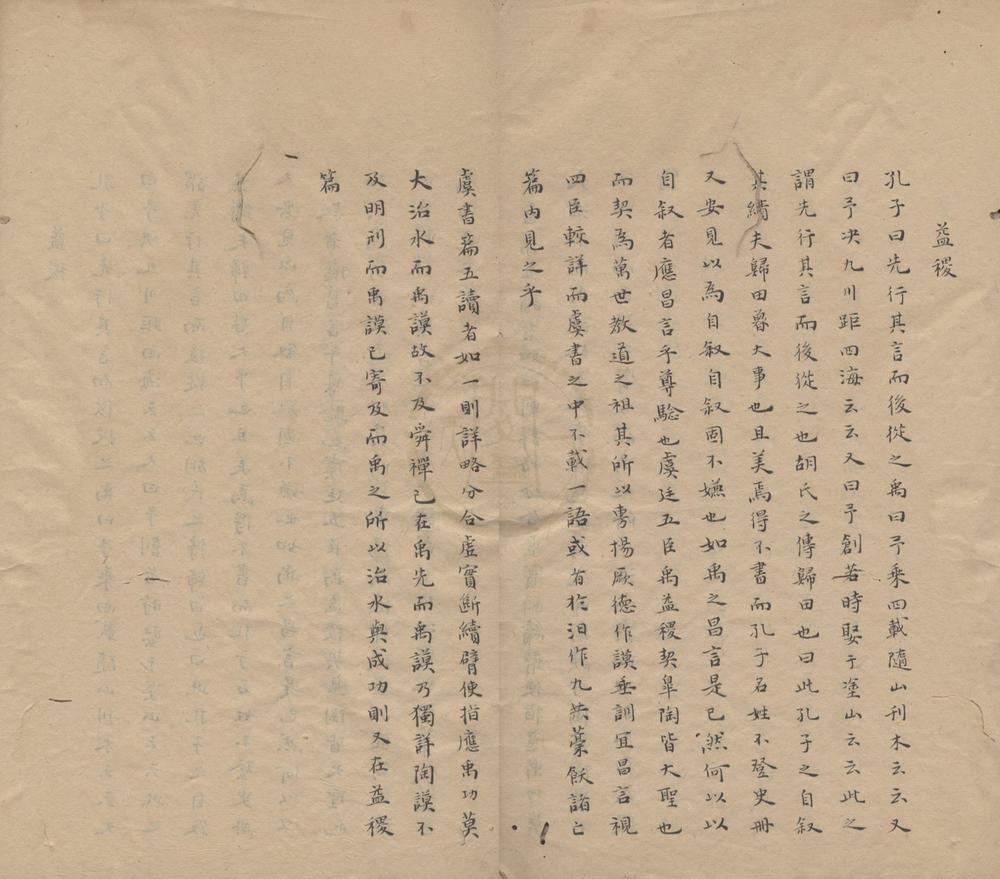 益稷
孔子曰先行其言而後從之禹曰予乘四載隨山刊木云云又
曰予決九川距四海云云又曰予創若時娶于塗山云云此之
謂先行其言而後從之也胡氏之傳歸田也曰此孔子之自叙
其績夫歸田魯大事也且美焉得不書而孔子名姓不登史冊
又安見以為自叙自叙固不嫌也如禹之昌言是已然何以以
自叙者應昌言乎尊驗也虞廷五臣禹益稷契臯陶皆大聖也
而契為萬世教道之祖其所以專揚厥德作謨垂訓宜昌言視
四臣較詳而虞書之中不載一語或者於汨作九共藁飫諸亡
篇內見之乎
虞書篇五讀者如一則詳略分合虛實斷續臂使指應禹功莫
大治水而禹謨故不及舜禪已在禹先而禹謨乃獨詳陶謨不
及明刑而禹謨已寄及而禹之所以治水與成功則又在益稷
篇